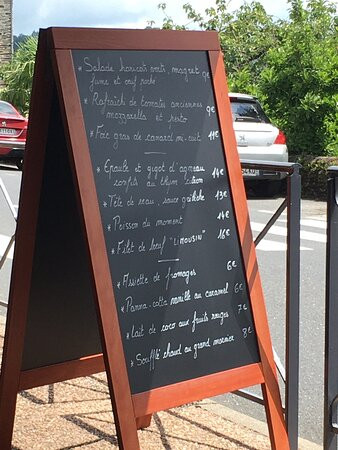 * Salade haricots verts, magret 9€
fumé et oeuf poché
* Rafraîchi de tomates anciennes 9€
mozzarella et pesto
* Foie gras de canard mi-cuit 11€
* Epaule et gigot d'agneau 14€
confits au thym citron
* Tête de veau, sauce gribiche 13€
* Poisson du moment 14€
* Filet de boeuf "LIMOUSIN" 16€
* Assiette de fromages 6€
* Panna-cotta vanille au caramel 6€
* Lait de coco aux fruits rouges 7€
* Soufflé chaud au grand marnier 8€